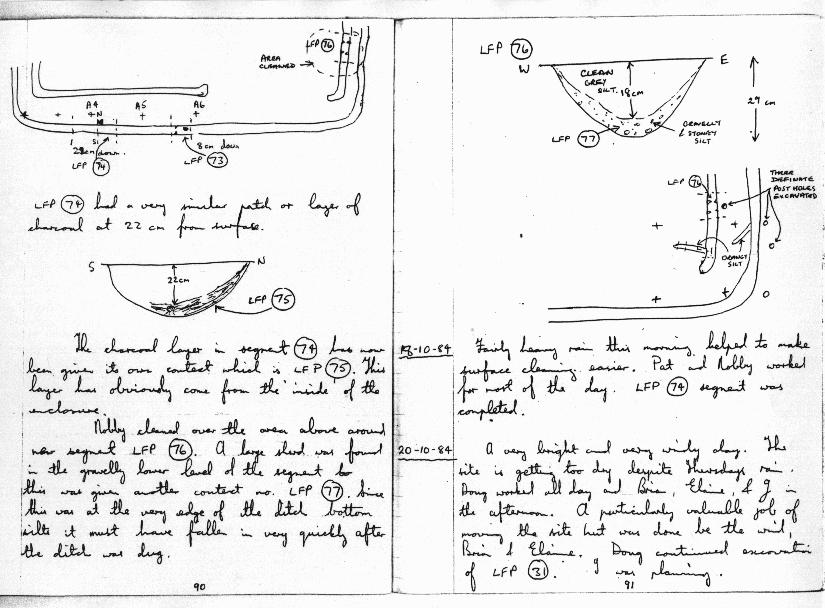 LFP 76
AREA
CLEANED
A4 A5 A6
N
S
22cm down
LFP 74
8cm down
LFP 73
LFP 74 had a very similar patch or layer of
charcoal at 22 cm from surface.
S N
22cm
LFP 75
The charcoal layer in segment 74 has now
been given its own context which is LFP 75. This
layer has obviously come from the 'inside' of the
enclosure.
Nobby cleaned over the area above around
new segment LFP 76. A large sherd was found
in the gravelly lower level of the segment so
this was given another context no. LFP 77. Since
this was at the very edge of the ditch bottom
silts it must have fallen in very quickly after
the ditch was dug.
90
LFP 76
W E
CLEAN
GREY
SILT.
18cm
29 cm
LFP 77
GRAVELLY
& STONEY
SILT
LFP 76
THREE
DEFINATE
POST HOLES
EXCAVATED
ORANGY
SILT
18-10-84
Fairly heavy rain this morning helped to make
surface cleaning easier. Pat and Nobby worked
for most of the day. LFP 74 segment was
completed.
20-10-84
A very bright and very windy day. The
site is getting too dry despite Thursdays rain.
Doug worked all day and Brian, Elaine, & I in
the afternoon. A particularly valuable job of
moving the site hut was done be the wind,
Brian & Elaine. Doug continued excavation
of LFP 31. I was planning.
91